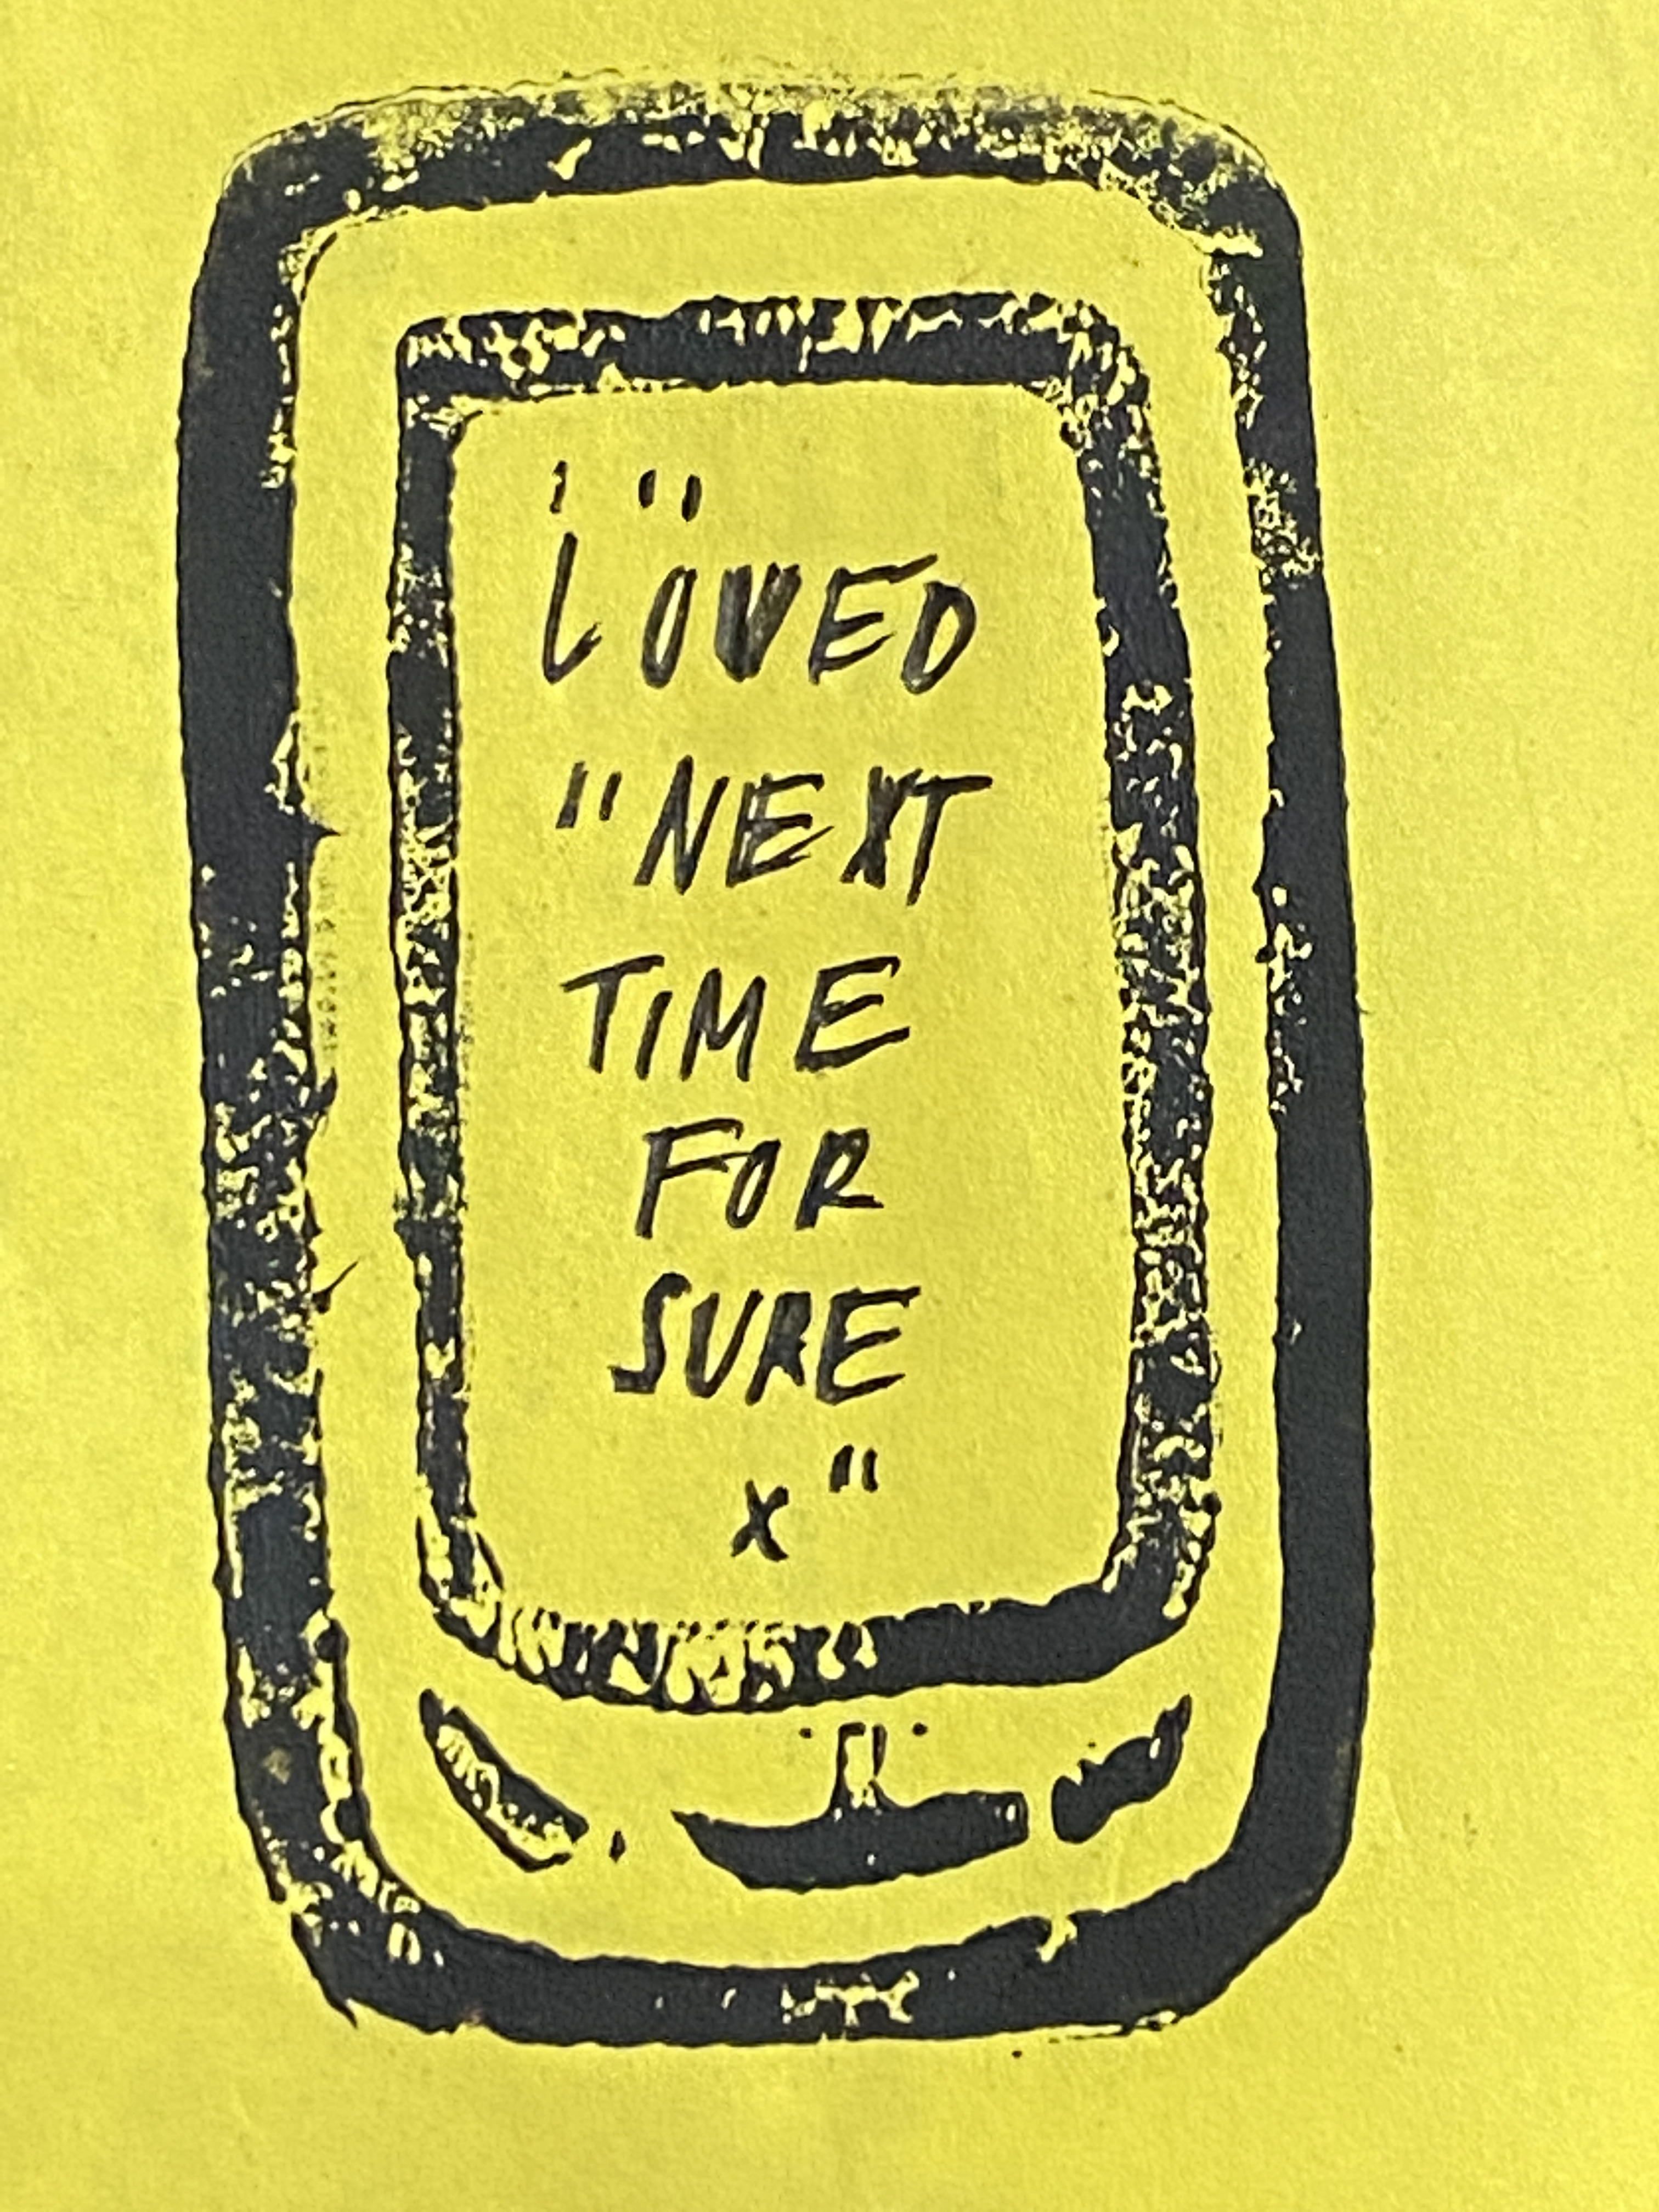 LOVED
"NEXT
TIME
FOR
SURE
x"